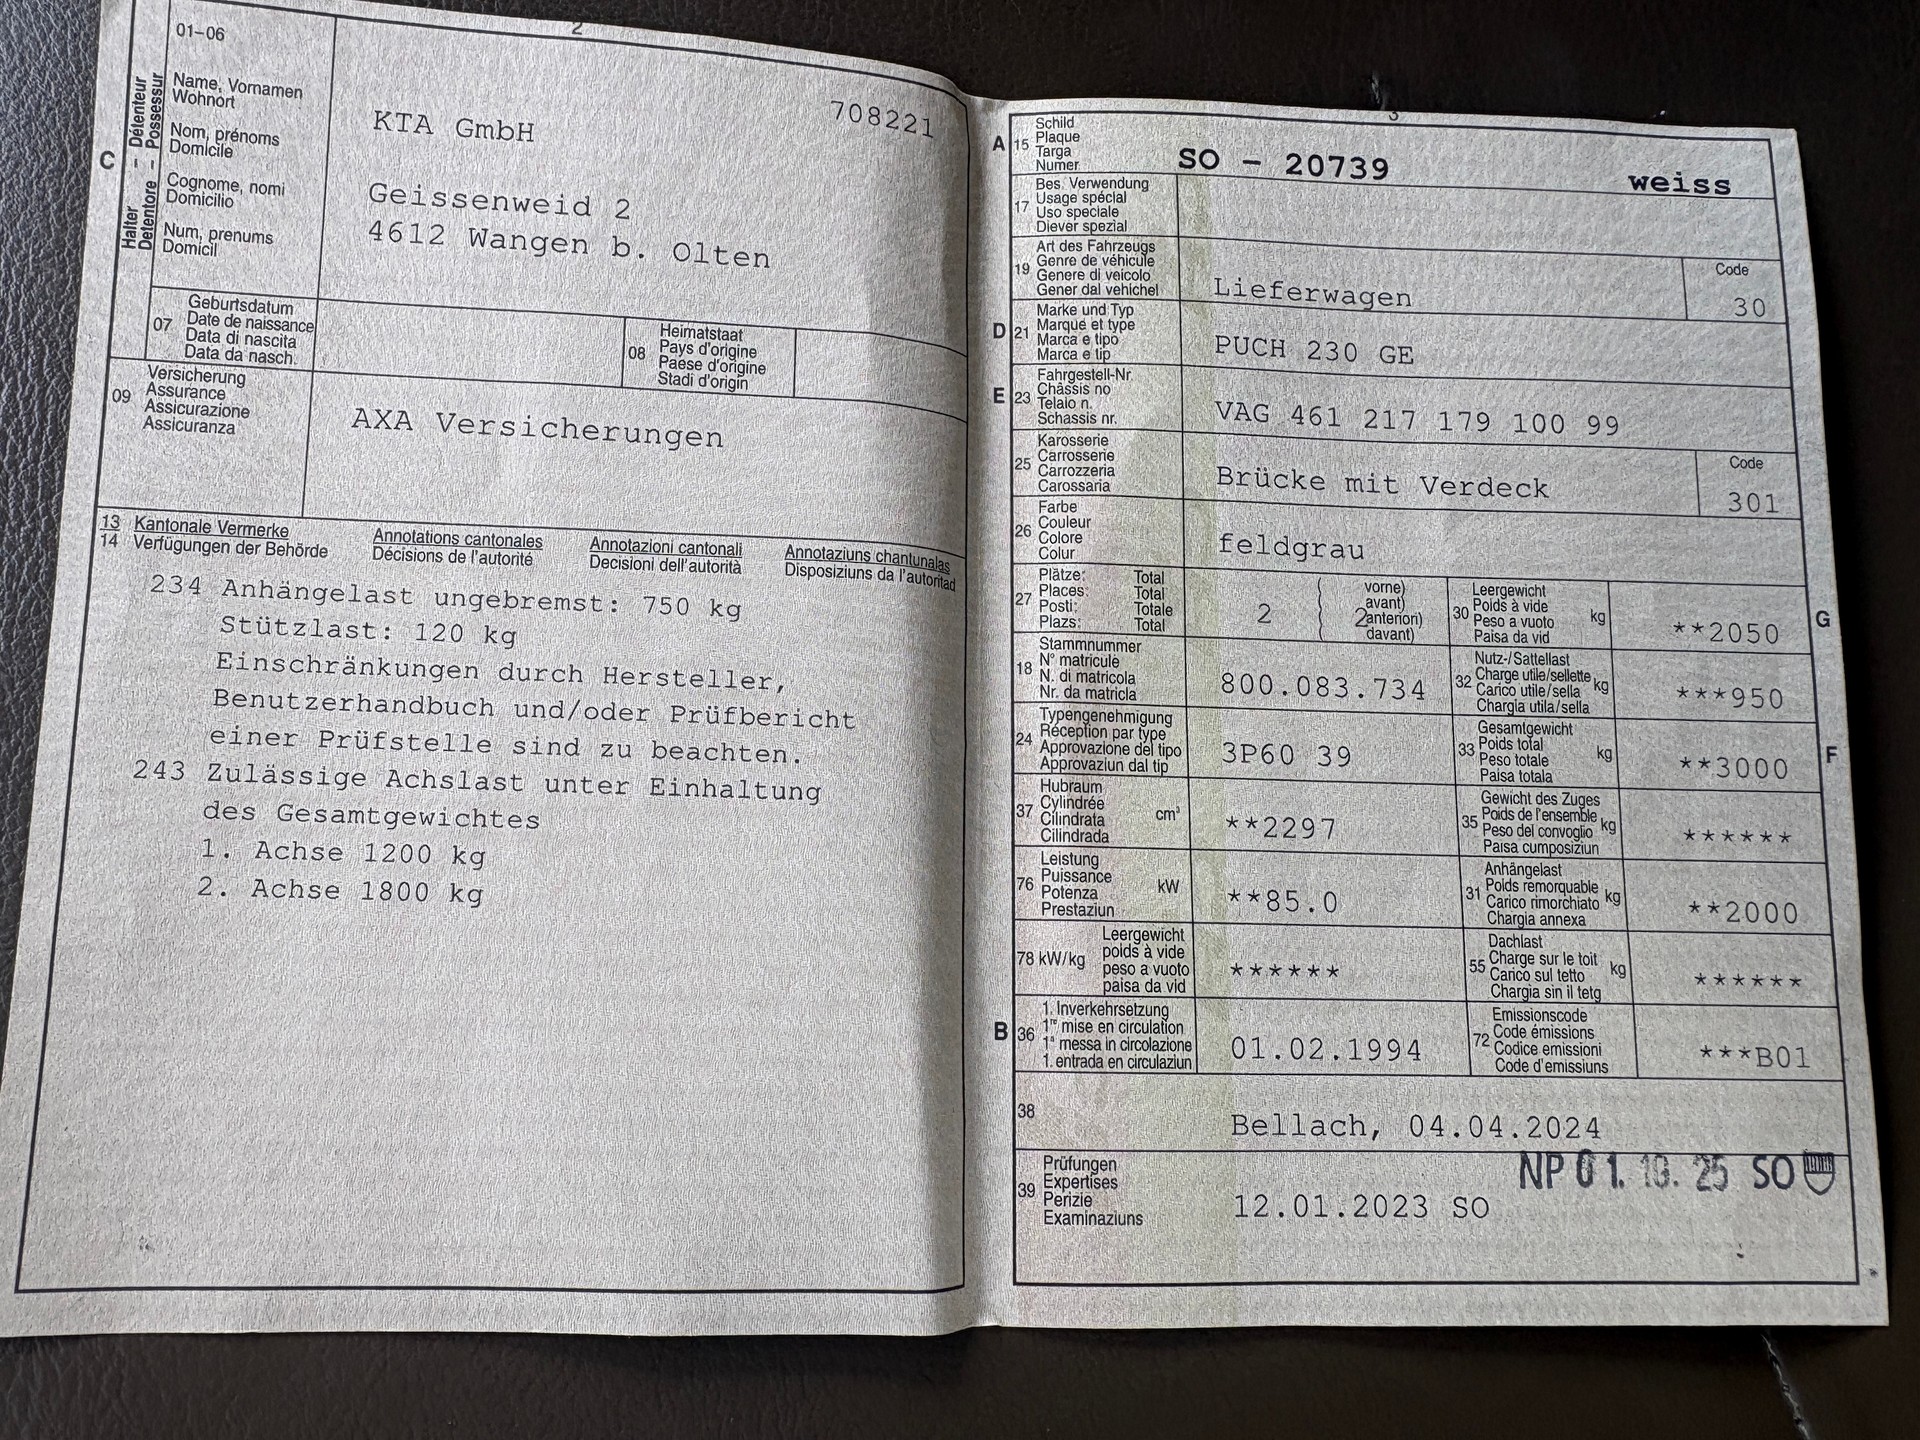 2
01–06
C
Halter – Détenteur
Detentore – Possessur
Name, Vornamen
Wohnort
Nom, prénoms
Domicile
Cognome, nomi
Domicilio
Num, prenums
Domicil
708221
KTA GmbH
Geissenweid 2
4612 Wangen b. Olten
07
Geburtsdatum
Date de naissance
Data di nascita
Data da nasch.
08
Heimatstaat
Pays d'origine
Paese d'origine
Stadi d'origin
09
Versicherung
Assurance
Assicurazione
Assicuranza
AXA Versicherungen
13 Kantonale Vermerke Annotations cantonales Annotazioni cantonali Annotaziuns chantunalas
14 Verfügungen der Behörde Décisions de l'autorité Decisioni dell'autorità Disposiziuns da l'autoritad
234 Anhängelast ungebremst: 750 kg
Stützlast: 120 kg
Einschränkungen durch Hersteller,
Benutzerhandbuch und/oder Prüfbericht
einer Prüfstelle sind zu beachten.
243 Zulässige Achslast unter Einhaltung
des Gesamtgewichtes
1. Achse 1200 kg
2. Achse 1800 kg
3
A 15
Schild
Plaque
Targa
Numer
SO - 20739 weiss
17
Bes. Verwendung
Usage spécial
Uso speciale
Diever spezial
19
Art des Fahrzeugs
Genre de véhicule
Genere di veicolo
Gener dal vehichel
Lieferwagen
Code
30
D 21
Marke und Typ
Marque et type
Marca e tipo
Marca e tip
PUCH 230 GE
E 23
Fahrgestell-Nr.
Châssis no
Telaio n.
Schassis nr.
VAG 461 217 179 100 99
25
Karosserie
Carrosserie
Carrozzeria
Carossaria
Brücke mit Verdeck
Code
301
26
Farbe
Couleur
Colore
Colur
feldgrau
27
Plätze: Total
Places: Total
Posti: Totale
Plazs: Total
2
vorne)
avant)
2 anteriori)
davant)
30
Leergewicht
Poids à vide
Peso a vuoto
Paisa da vid
kg
**2050
G
18
Stammnummer
N° matricule
N. di matricola
Nr. da matricla
800.083.734
32
Nutz-/Sattellast
Charge utile/sellette
Carico utile/sella
Chargia utila/sella
kg
***950
24
Typengenehmigung
Réception par type
Approvazione del tipo
Approvaziun dal tip
3P60 39
33
Gesamtgewicht
Poids total
Peso totale
Paisa totala
kg
**3000
F
37
Hubraum
Cylindrée
Cilindrata
Cilindrada
cm³
**2297
35
Gewicht des Zuges
Poids de l'ensemble
Peso del convoglio
Paisa cumposiziun
kg
******
76
Leistung
Puissance
Potenza
Prestaziun
kW
**85.0
31
Anhängelast
Poids remorquable
Carico rimorchiato
Chargia annexa
kg
**2000
78 kW/kg
Leergewicht
poids à vide
peso a vuoto
paisa da vid
******
55
Dachlast
Charge sur le toit
Carico sul tetto
Chargia sin il tetg
kg
******
B 36
1. Inverkehrsetzung
1re mise en circulation
1a messa in circolazione
1. entrada en circulaziun
01.02.1994
72
Emissionscode
Code émissions
Codice emissioni
Code d'emissiuns
***B01
38
Bellach, 04.04.2024
39
Prüfungen
Expertises
Perizie
Examinaziuns
NP 01. 10. 25 SO
12.01.2023 SO